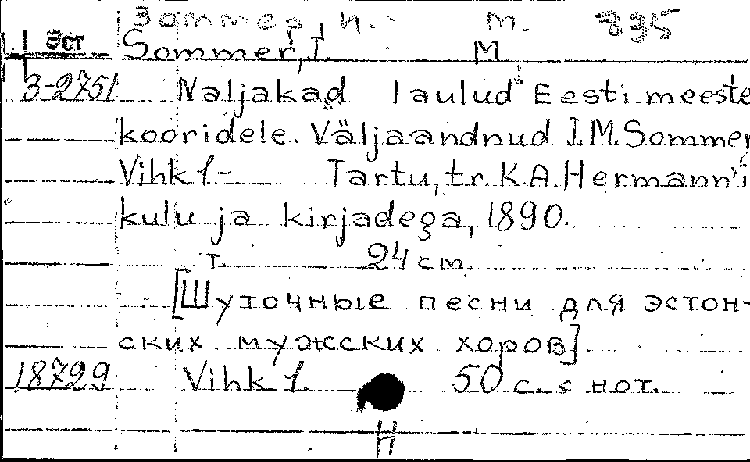 Зоммер, И. М. 895
Эст Sommer, I. M
3-2751 Naljakad laulud Eesti meeste
kooridele. Väljaandnud I.M.Sommer
Vihk 1- Tartu, tr. K.A.Hermann'i
kulu ja kirjadega, 1890.
т. 24 cm.
[Шуточные песни для эстон-
ских мужских хоров].
18729 Vihk 1. 50 с. с нот.
Н